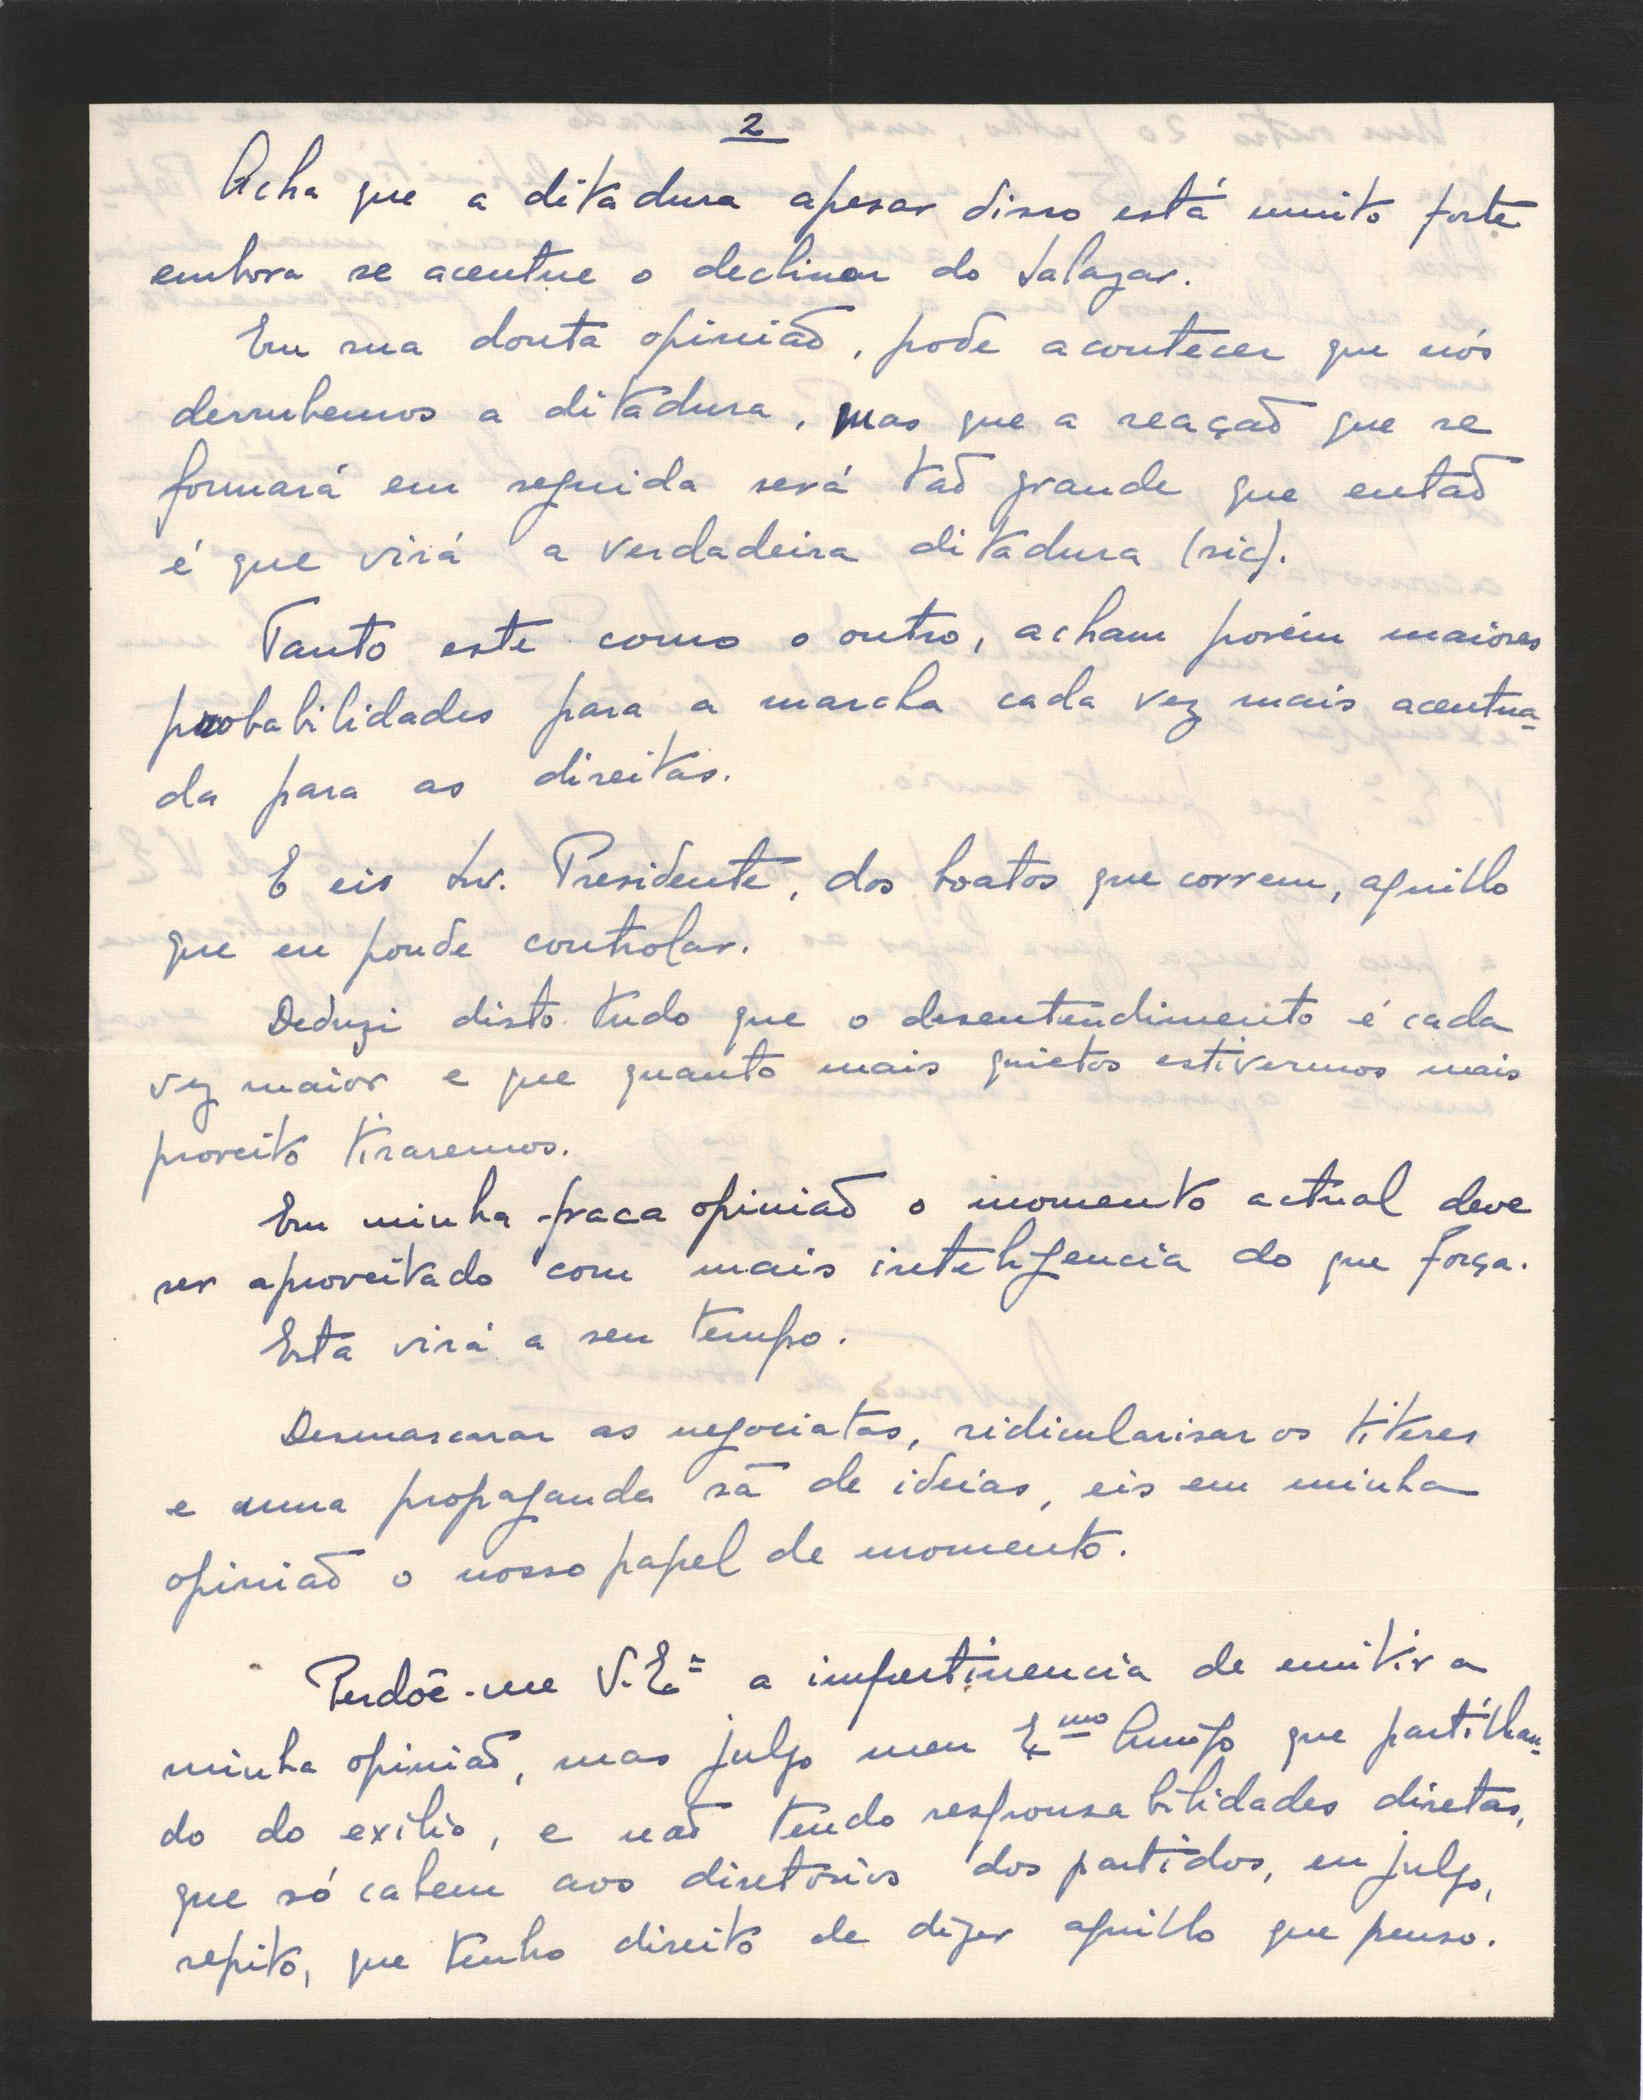 2
Acha que a ditadura apesar disso está muito forte
embora se acentue o declinar do Salazar.
Em sua douta opinião, pode acontecer que nós
derrubemos a ditadura, mas que a reação que se
formará em seguida será tão grande que então
é que virá a verdadeira ditadura (sic).
Tanto este como o outro, acham porém maiores
probabilidades para a marcha cada vez mais acentua-
da para as direitas.
E eis Snr. Presidente, dos boatos que correm, aquillo
que eu poude controlar.
Deduzi disto tudo que o desentendimento é cada
vez maior e que quanto mais quietos estivermos mais
proveito tiraremos.
Em minha fraca opinião o momento actual deve
ser aproveitado com mais inteligencia do que força.
Esta virá a seu tempo.
Desmascarar as negociatas, ridicularisar os titeres
e uma propaganda sã de ideias, eis em minha
opinião o nosso papel de momento.
Perdôe-me V. Exª a impertinencia de emitir a
minha opinião, mas julgo meu Exmo Amigo que partilhan-
do do exilio, e não tendo responsabilidades diretas,
que só cabem aos diretórios dos partidos, eu julgo,
repito, que tenho direito de dizer aquillo que penso.